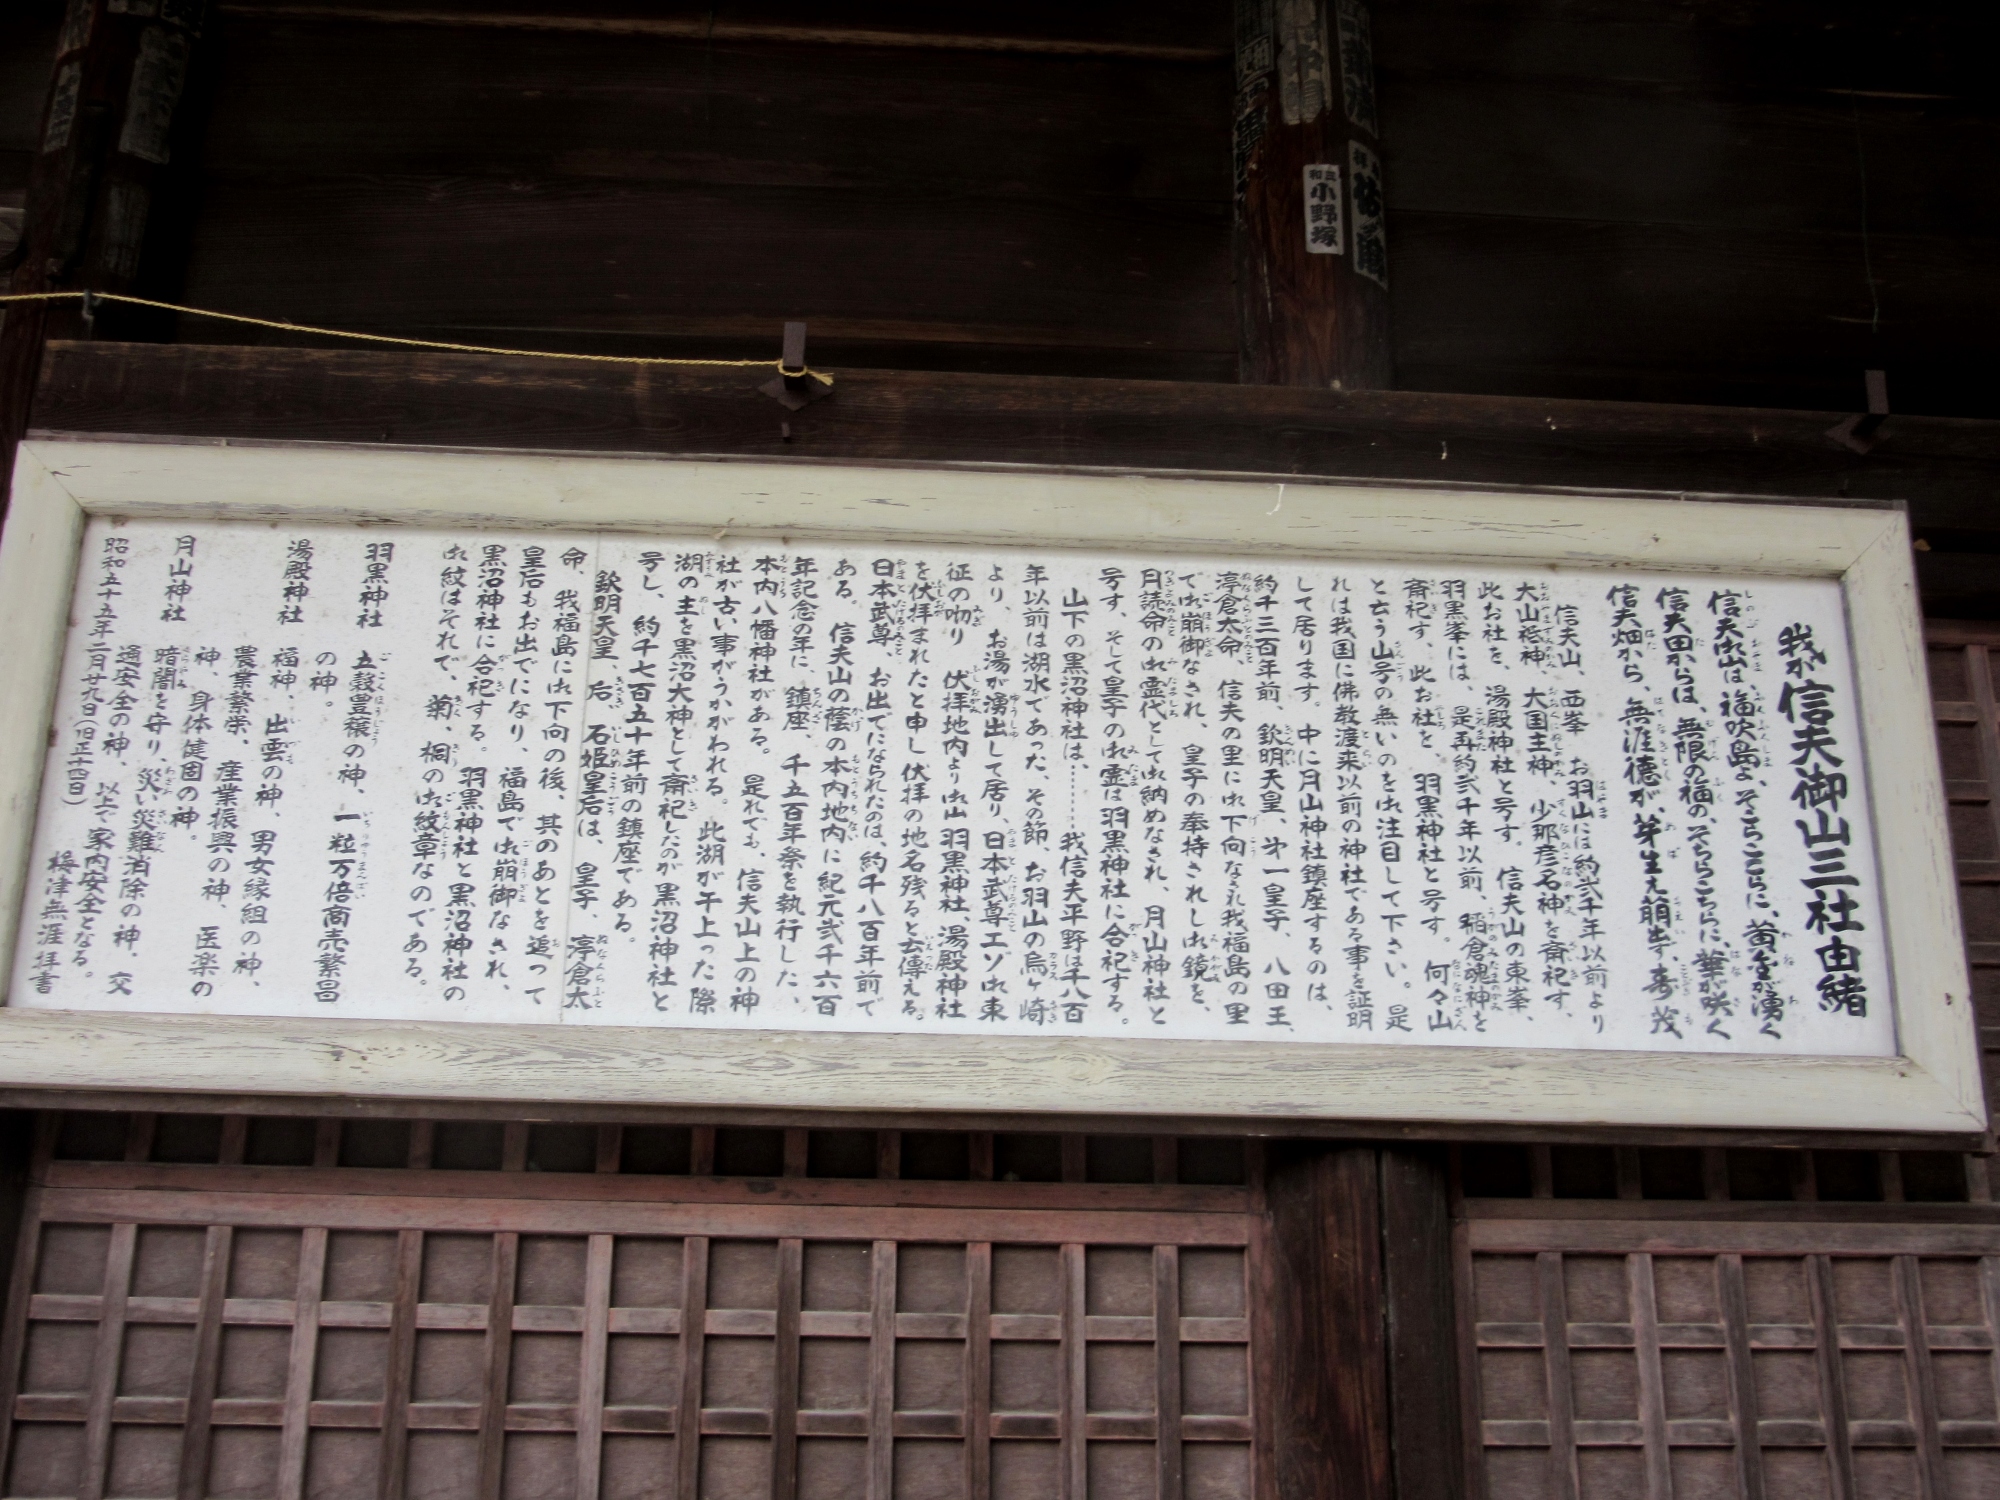 我が信夫御山三社由緒
信夫御山は福吹島よ、そこらここらに、黄金が湧く
信夫田からは、無限の福の、そちらこちらに、華が咲く
信夫畑から、無涯徳が、芽生え萌出す、寿茂
信夫山、西峯 お羽山には約弐千年以前より
大山祗神、大国主神、少那彦名神を斎祀す、
此お社を、湯殿神社と号す。信夫山の東峯、
羽黒峯には、是再約弐千年以前、稲倉魂神を
斎祀す、此お社を、羽黒神社と号す。何々山
と云う山号の無いのを御注目して下さい。是
れは我国に佛教渡来以前の神社である事を証明
して居ります。中に月山神社鎮座するのは、
約千三百年前、欽明天皇、第一皇子、八田王、
淳倉太命、信夫の里に御下向なされ我福島の里
で御崩御なされ、皇子の奉持されし御鏡を、
月読命の御霊代として御納めなされ、月山神社と
号す、そして皇子の御霊は羽黒神社に合祀する。
山下の黒沼神社は、……我信夫平野は千八百
年以前は湖水であった、その節、お羽山の烏ヶ崎
より、お湯が湧出して居り、日本武尊エゾ御東
征の砌り 伏拝地内より御山羽黒神社、湯殿神社
を伏拝まれたと申し伏拝の地名残ると云傳える。
日本武尊、お出でになられたのは、約千八百年前で
ある。信夫山の蔭の本内地内に紀元弐千六百
年記念の年に、鎮座、千五百年祭を執行した、
本内八幡神社がある。是れでも、信夫山上の神
社が古い事がうかがわれる。此湖が干上った際
湖の主を黒沼大神として斎祀したのが黒沼神社と
号し、約千七百五十年前の鎮座である。
欽明天皇、后、石姫皇后は、皇子、淳倉太
命、我福島に御下向の後、其のあとを追って
皇后もお出でになり、福島で御崩御なされ、
黒沼神社に合祀する。羽黒神社と黒沼神社の
御紋はそれで、菊、桐の御紋章なのである。
羽黒神社 五穀豊穣の神、一粒万倍商売繁昌
の神。
湯殿神社 福神、出雲の神、男女縁組の神、
農業繁栄、産業振興の神、医楽の
神、身体健固の神。
月山神社 暗闇を守り、災い災難消除の神、交
通安全の神、以上で家内安全となる。
昭和五十五年二月廿九日(旧正十四日) 梅津無涯拝書
小野塚